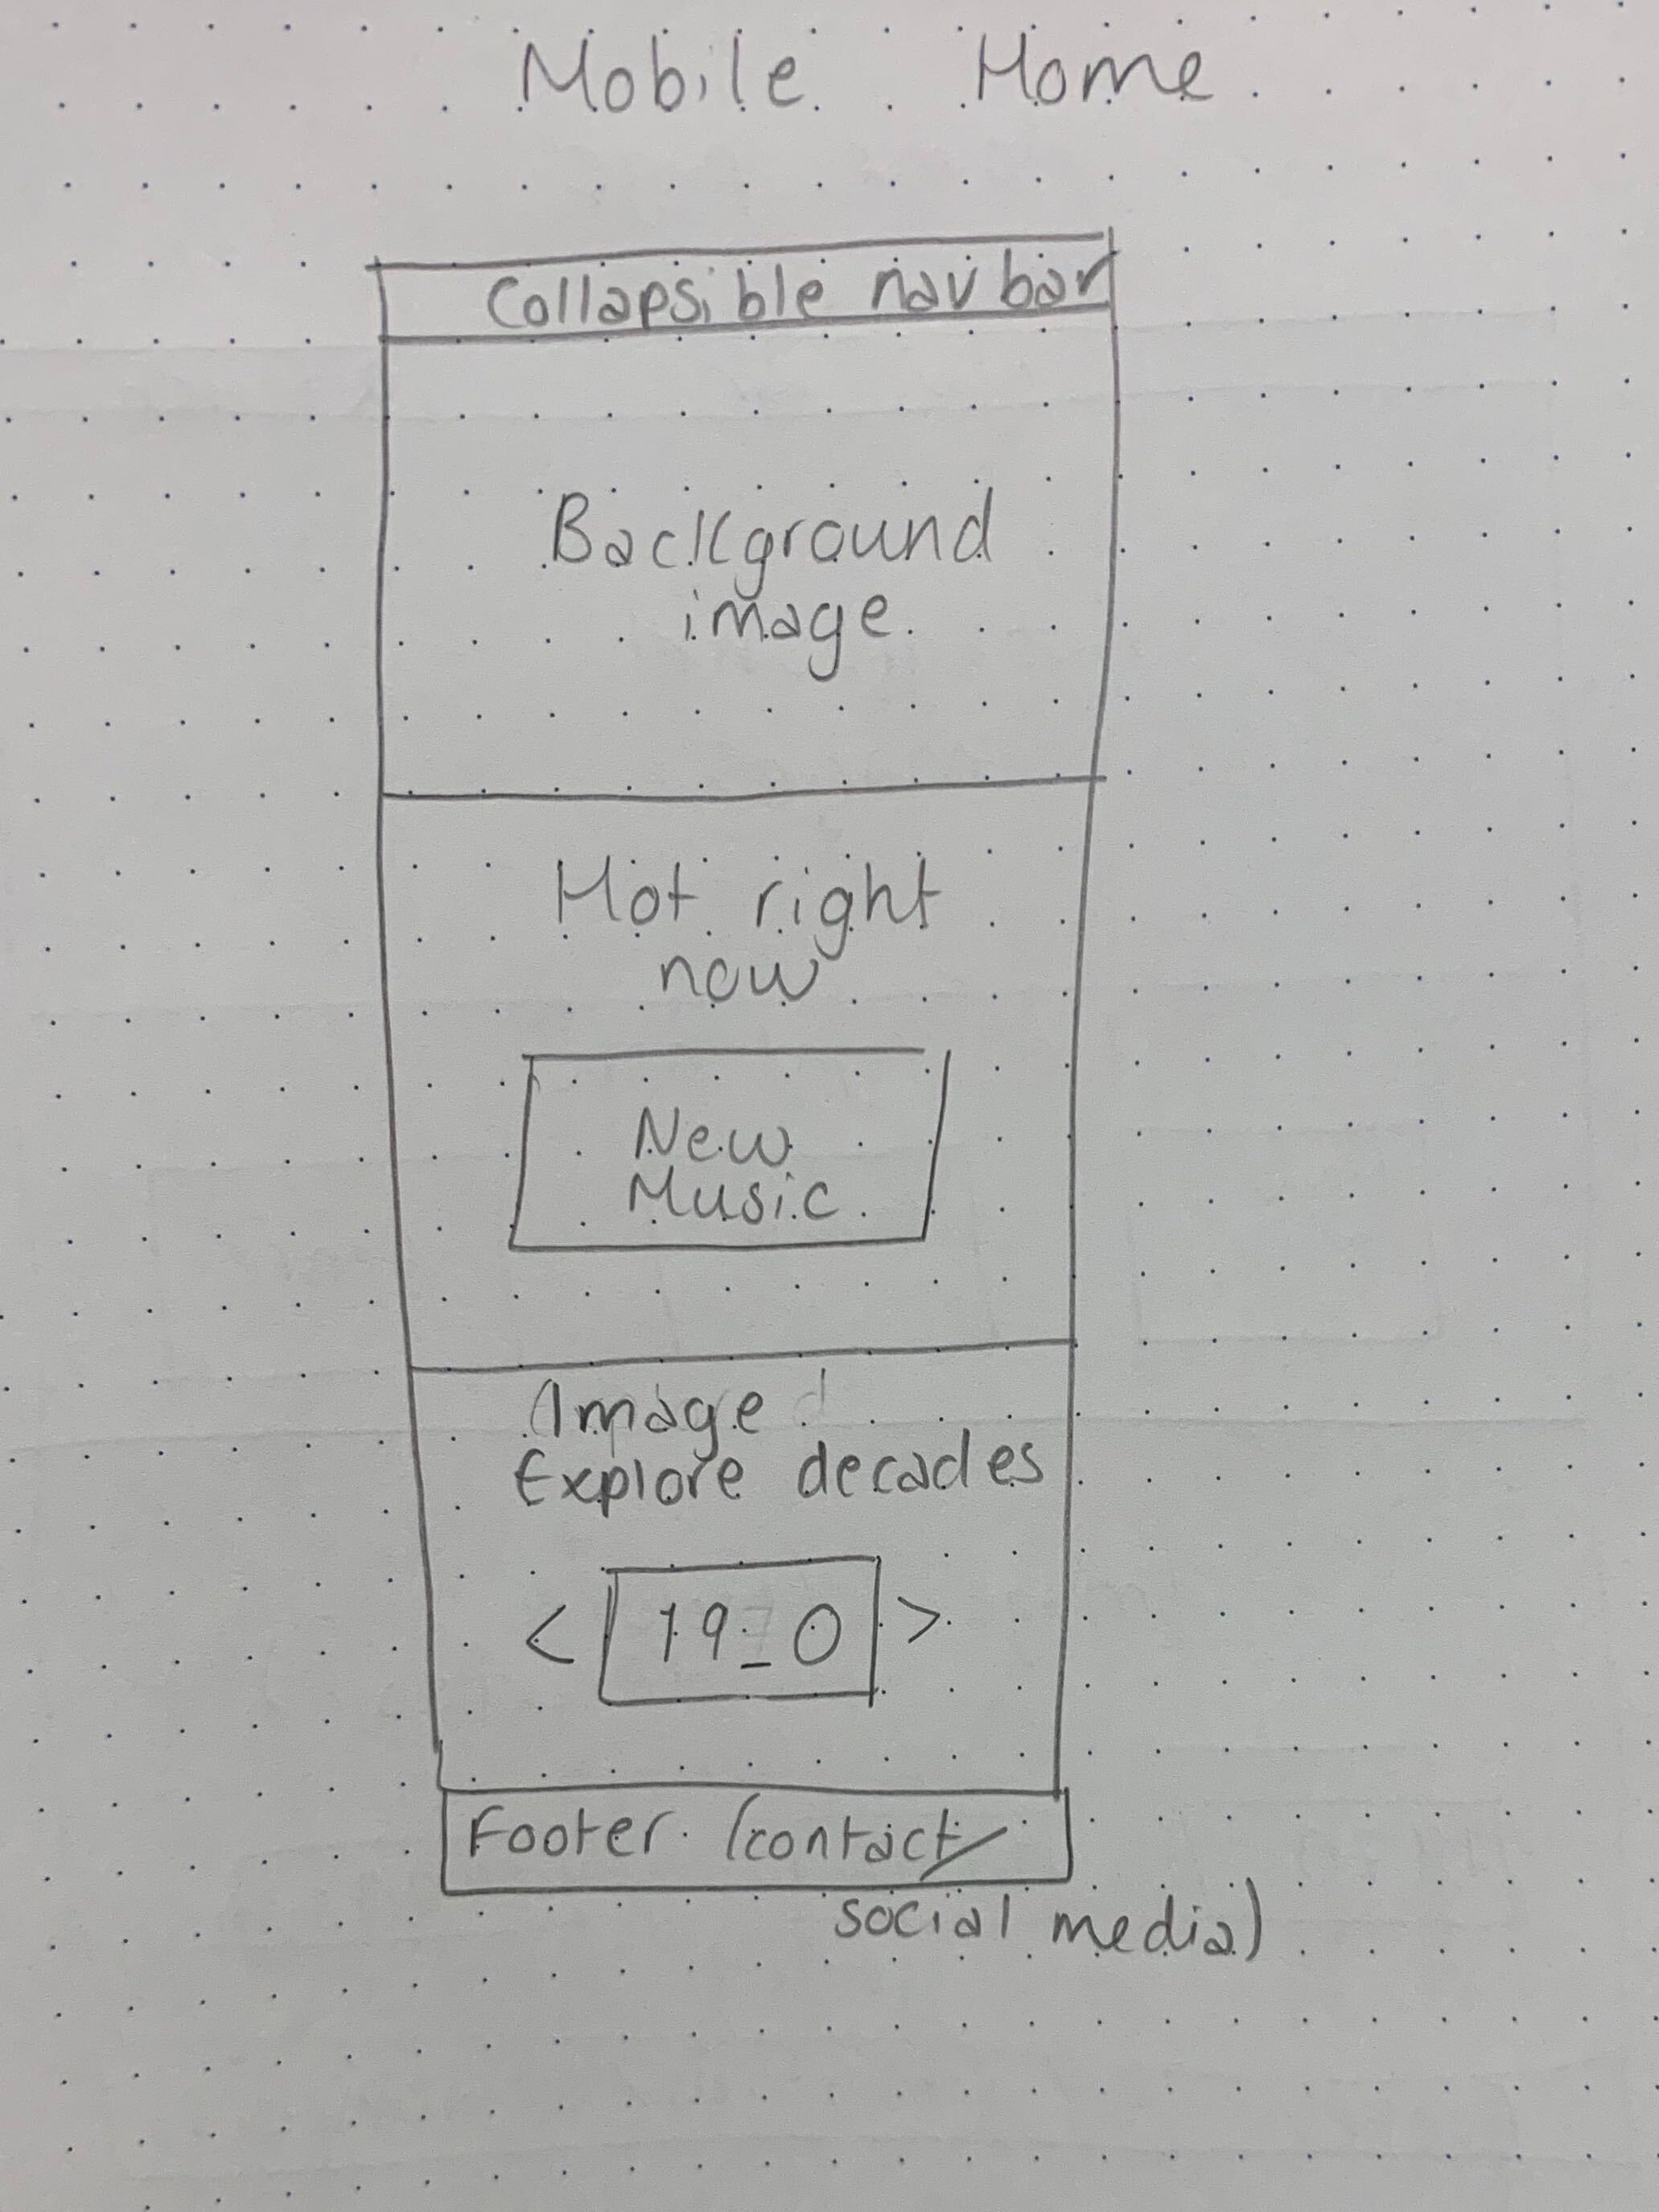 Mobile Home
Collapsible navbar
Background
image
Hot right
now
New
Music
Image
Explore decades
< 19_0 >
Footer (contact/
social media)